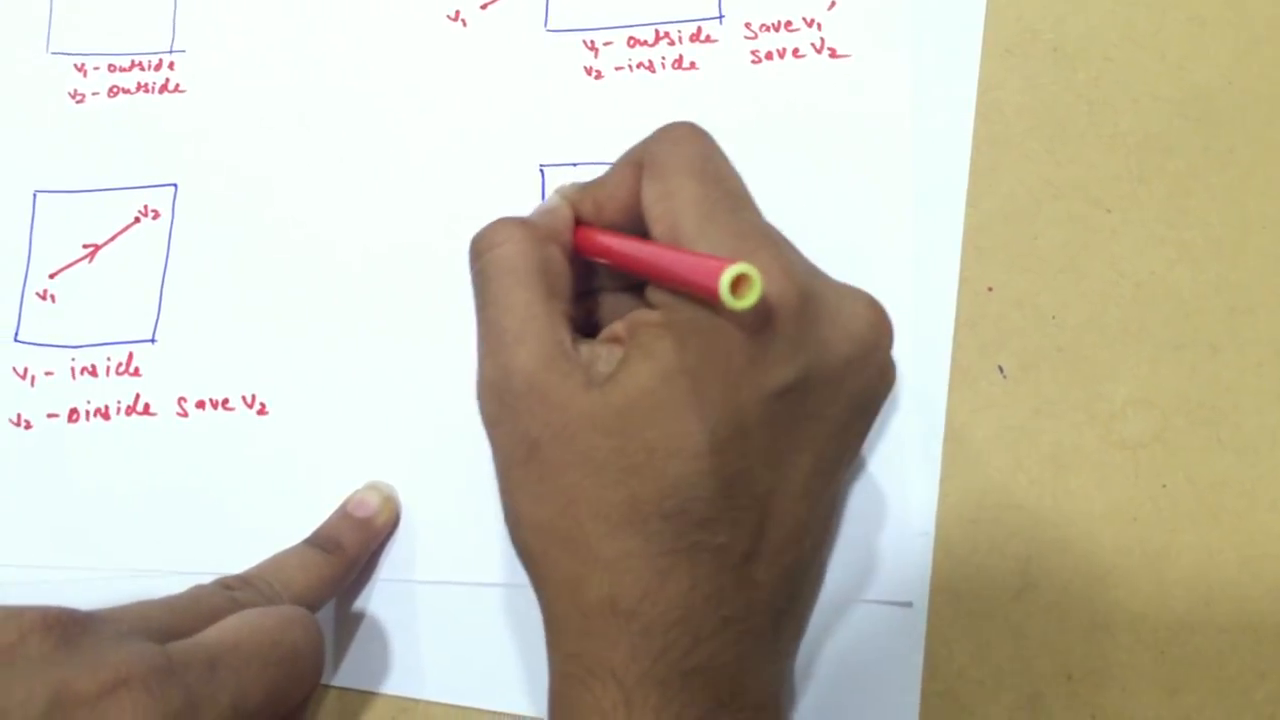 v₁ - outside
v₂ - outside
v₁
v₁ - outside save v₁'
v₂ - inside save v₂
v₂
v₁
v₁ - inside
v₂ - inside save v₂